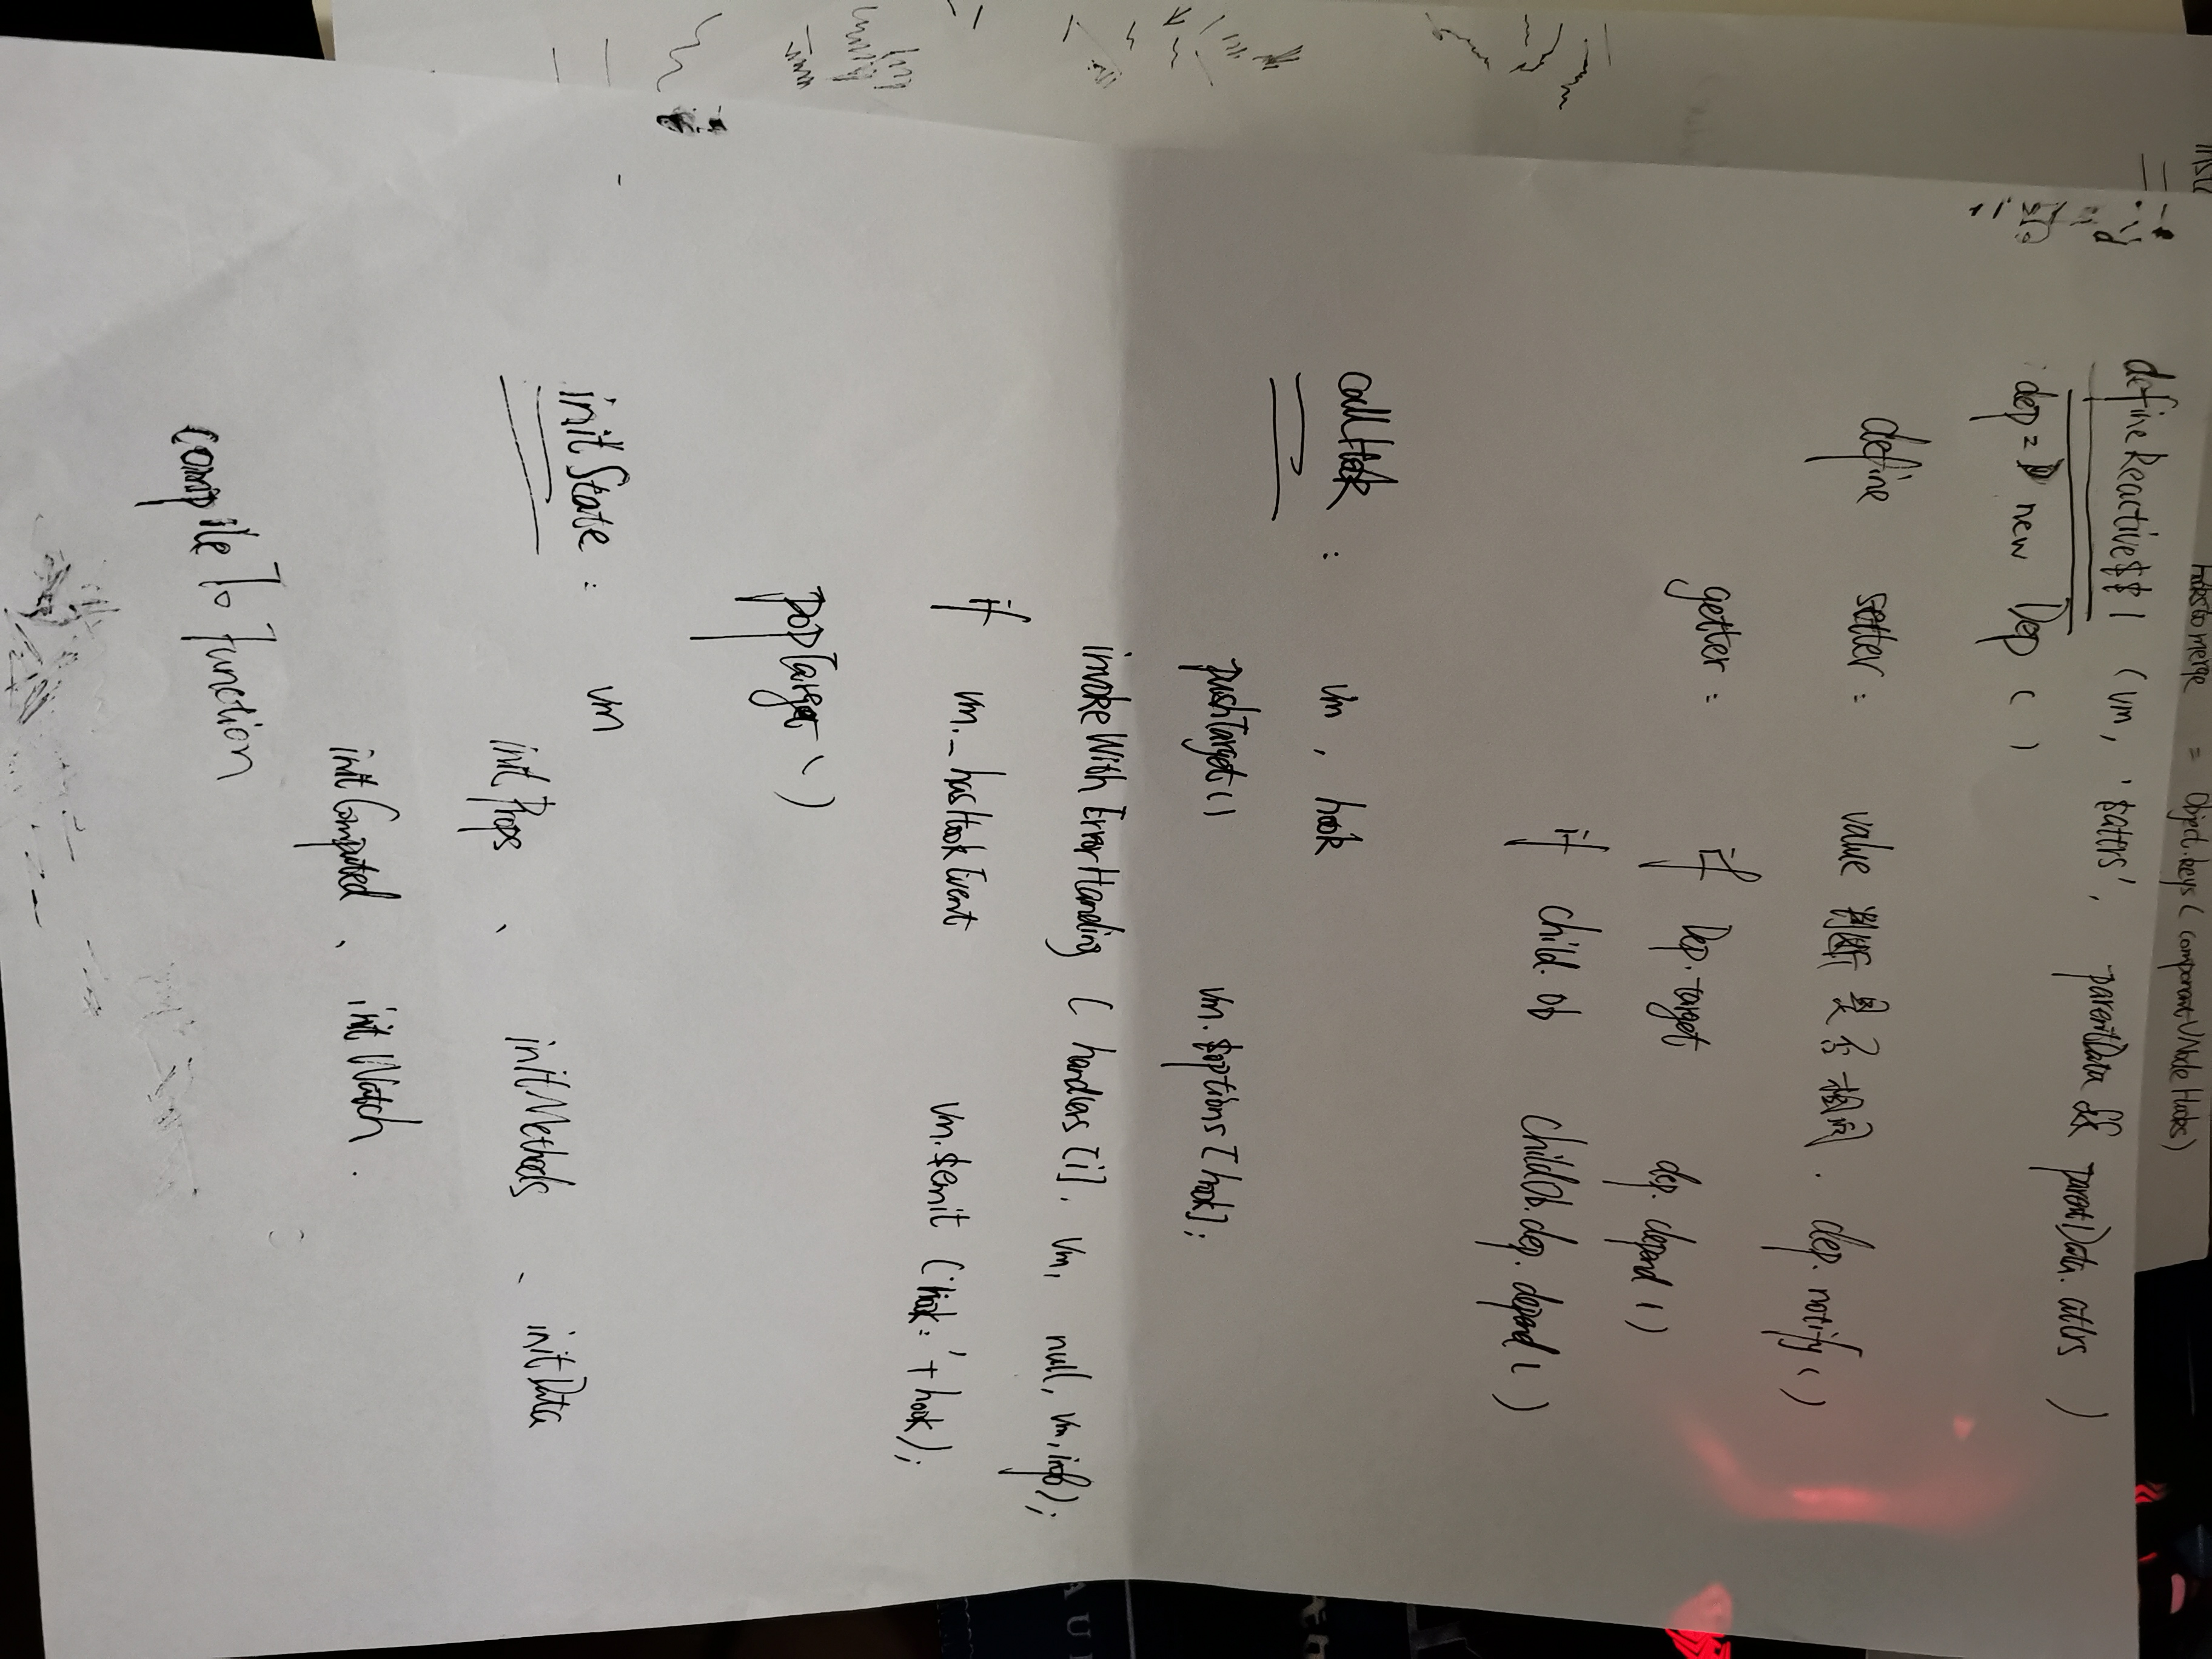 hooksToMerge = Object.keys(componentVNodeHooks)
defineReactive$$1 (vm, '$attrs', parentData && parentData.attrs )
dep = new Dep ( )
define setter: value 判断 是否 相同. dep. notify ( )
getter: if Dep. target dep. depend ( )
if child. ob childOb. dep. depend ( )
callHook : vm , hook
pushTarget() vm. $options [hook];
invokeWithErrorHanding ( handlers [i], vm, null, vm, info);
if vm. _hasHookEvent vm. $emit ('hook:' + hook);
popTarget ( )
initState : vm
initProps 、 initMethods 、 initData
initComputed 、 initWatch .
compileToFunction